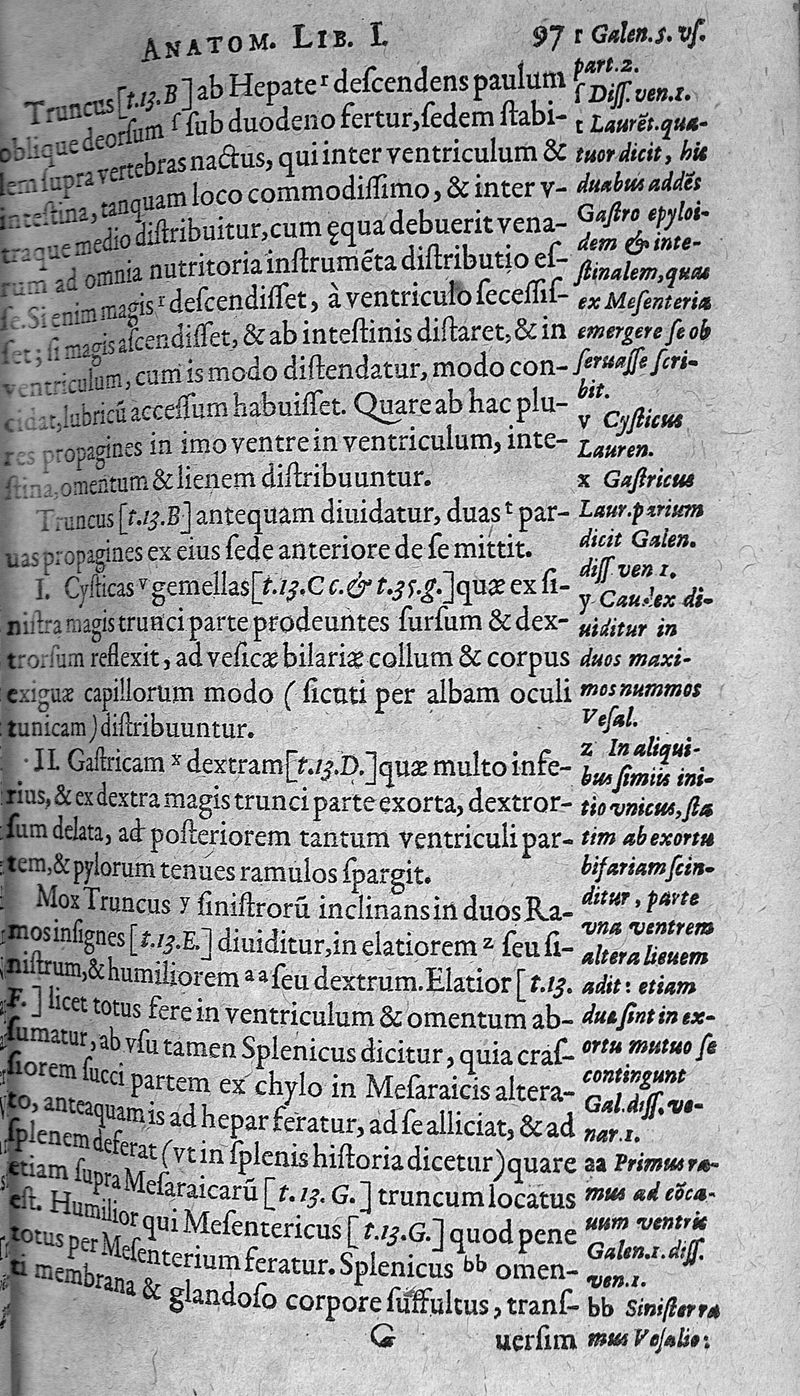 ANATOM. LIB. I. 97
Truncus [t.13.B] ab Hepate ʳ deſcendens paulum
oblique deorſum ſ ſub duodeno fertur, ſedem ſtabi-
lem ſupra vertebras nactus, qui inter ventriculum &
inteſtina, tanquam loco commodiſſimo, & inter v-
traque medio diſtribuitur, cum ęqua debuerit vena-
rum ad omnia nutritoria inſtrumẽta diſtributio eſ-
ſe. Si enim magis ʳ deſcendiſſet, à ventriculo ſeceſſiſ-
ſet; ſi magis aſcendiſſet, & ab inteſtinis diſtaret, & in
ventriculum, cum is modo diſtendatur, modo con-
cidat, lubricũ acceſſum habuiſſet. Quare ab hac plu-
res propagines in imo ventre in ventriculum, inte-
ſtina, omentum & lienem diſtribuuntur.
Truncus [t.13.B] antequam diuidatur, duas ᵗ par-
uas propagines ex eius ſede anteriore de ſe mittit.
I. Cyſticas ᵛ gemellas [t.13.C c. & t.35.g.] quæ ex ſi-
niſtra magis trunci parte prodeuntes ſurſum & dex-
trorſum reflexit, ad veſicæ bilariæ collum & corpus
exiguæ capillorum modo (ſicuti per albam oculi
tunicam) diſtribuuntur.
II. Gaſtricam ˣ dextram [t.13.D.] quæ multo infe-
rius, & ex dextra magis trunci parte exorta, dextror-
ſum delata, ad poſteriorem tantum ventriculi par-
tem, & pylorum tenues ramulos ſpargit.
Mox Truncus ʸ ſiniſtrorũ inclinans in duos Ra-
mos inſignes [t.13.E.] diuiditur, in elatiorem ᶻ ſeu ſi-
niſtrum, & humiliorem ᵃᵃ ſeu dextrum. Elatior [t.13.
F.] licet totus fere in ventriculum & omentum ab-
ſumatur, ab vſu tamen Splenicus dicitur, quia craſ-
ſiorem ſucci partem ex chylo in Meſaraicis altera-
to, anteaquam is ad hepar feratur, ad ſe alliciat, & ad
ſplenem deferat (vt in ſplenis hiſtoria dicetur) quare
etiam ſupra Meſaraicarũ [t. 13. G.] truncum locatus
eſt. Humilior qui Meſentericus [t.13.G.] quod pene
totus per Meſenterium feratur. Splenicus ᵇᵇ omen-
ti membrana & glandoſo corpore ſuffultus, tranſ-
G uerſim
r Galen.5. vſ.
part.2.
ſ Diſſ. ven.1.
t Laurẽt. qua-
tuor dicit, his
duabus addẽs
Gaſtro epyloi-
dem & inte-
ſtinalem, quas
ex Meſenteria
emergere ſe ob
ſeruaſſe ſcri-
bit.
v Cyſticus
Lauren.
x Gaſtricus
Laur. parium
dicit Galen.
diſſ. ven 1.
y Caudex di-
uiditur in
duos maxi-
mos nummos
Veſal.
z In aliqui-
bus ſimiis ini-
tio vnicus, ſta
tim ab exortu
bifariam ſcin-
ditur, parte
vna ventrem
altera lieuem
adit: etiam
duæ ſint in ex-
ortu mutuo ſe
contingunt
Gal. diſſ. ve-
nar.1.
aa Primus ra-
mus ad cõca-
uum ventris
Galen.1. diſſ.
ven.1.
bb Siniſter ra
mus Veſalio: